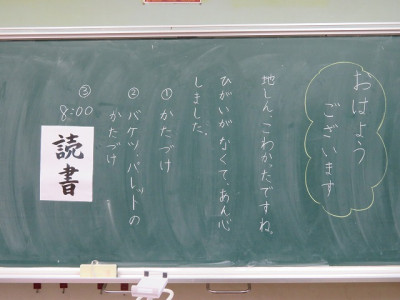 おはよう
ございます
地しん、こわかったですね。
ひがいがなくて、あん心
しました。
① かたづけ
② バケツ・パレットの
かたづけ
③
8:00
読書